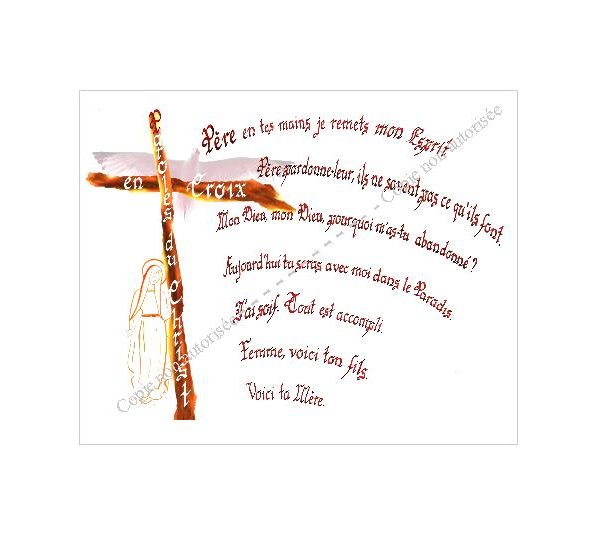 Paroles du Christ
en Croix
Père en tes mains je remets mon Esprit
Père pardonne-leur, ils ne savent pas ce qu'ils font.
Mon Dieu, mon Dieu, pourquoi m'as-tu abandonné ?
Aujourd'hui tu seras avec moi dans le Paradis.
J'ai soif. Tout est accompli.
Femme, voici ton fils.
Voici ta Mère.
Copie non autorisée - - - - - - - - - - Copie non autorisée